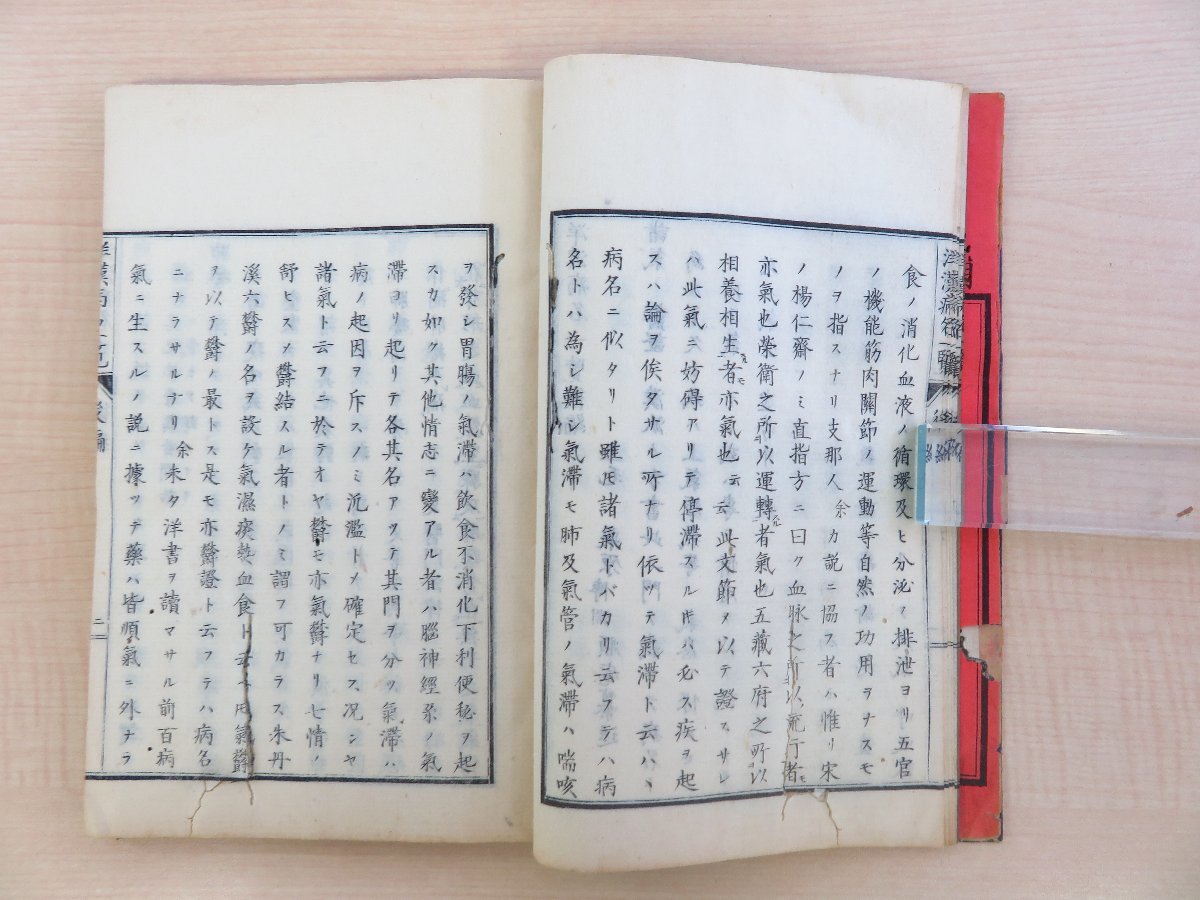 食ノ消化血液ノ循環及ヒ分泌ノ排泄ヨリ五官
ノ機能筋肉關節ノ運動等自然ノ功用ヲナスモ
ノヲ指スナリ支那人余カ説ニ協フ者ハ惟リ宋
ノ楊仁齋ノミ直指方ニ曰ク血脉之所以流行者
亦氣也榮衛之所以運轉者氣也五藏六府之所以
相養相生者亦氣也云云此文節メ以テ證スサレ
ハ此氣ニ妨碍アリテ停滞スル𪜈ハ必ス疾ヲ起
スハ論ヲ俟タサル所ナリ依ッテ氣滞ト云ハヽ
病名ニ似タリト雖𪜈諸氣トバカリ云フテハ病
名トハ為シ難シ氣滞モ肺及氣管ノ氣滞ハ喘咳
ヲ發シ胃腸ノ氣滞ハ飲食不消化下利便秘ヲ起
スカ如ク其他情志ニ變アル者ハ腦神經系ノ氣
滞ヨリ起リテ各其名アツテ其門ヲ分ツ氣滞ハ
病ノ起因ヲ斥スノミ汎濫トメ確定セス况ンヤ
諸氣ト云フニ於テオヤ欝モ亦氣欝ナリ七情ノ
舒ヒスメ欝結スル者トノミ謂フ可カラス朱丹
溪六欝ノ名ヲ設ケ氣濕痰熱血食ト云ヘ𪜈氣欝
ヲ以テ欝ノ最トス是モ亦欝證ト云フテハ病名
ニナラサルナリ余未タ洋書ヲ讀マサル前百病
氣ニ生スルノ説ニ據ッテ藥ハ皆順氣ニ外ナラ
洋漢病名一覽
後編
二